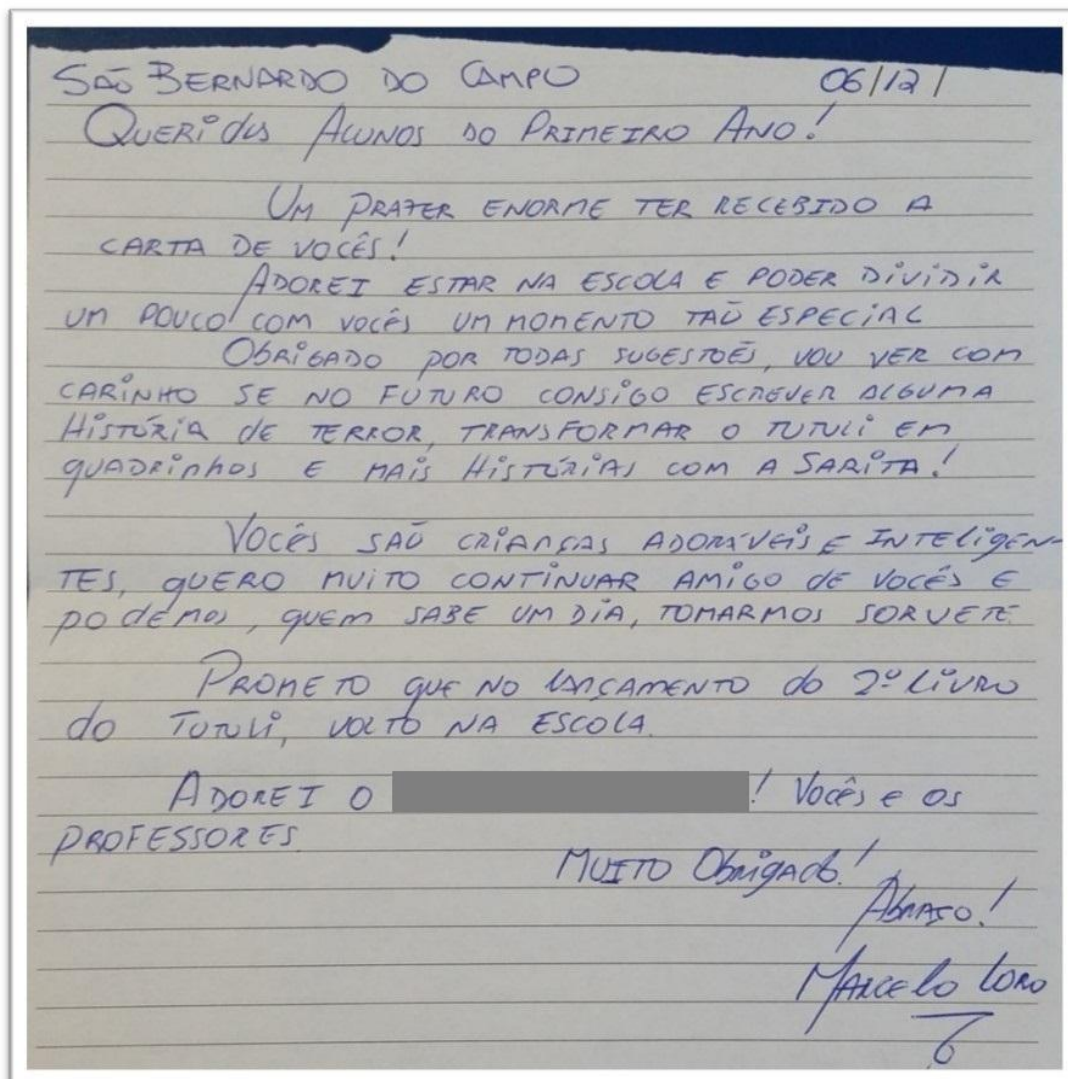 SÃO BERNARDO DO CAMPO 06/12/
QUERIDOS ALUNOS DO PRIMEIRO ANO!
UM PRAZER ENORME TER RECEBIDO A
CARTA DE VOCÊS!
ADOREI ESTAR NA ESCOLA E PODER DIVIDIR
UM POUCO COM VOCÊS UM MOMENTO TÃO ESPECIAL
OBRIGADO POR TODAS SUGESTÕES, VOU VER COM
CARINHO SE NO FUTURO CONSIGO ESCREVER ALGUMA
HISTÓRIA DE TERROR, TRANSFORMAR O TUTULI EM
QUADRINHOS E MAIS HISTÓRIAS COM A SARITA!
VOCÊS SÃO CRIANÇAS ADORÁVEIS E INTELIGEN-
TES, QUERO MUITO CONTINUAR AMIGO DE VOCÊS E
PODEMOS, QUEM SABE UM DIA, TOMARMOS SORVETE.
PROMETO QUE NO LANÇAMENTO DO 2º LIVRO
DO TUTULI, VOLTO NA ESCOLA.
ADOREI O ! VOCÊS E OS
PROFESSORES.
MUITO OBRIGADO!
ABRAÇO!
MARCELO LORO